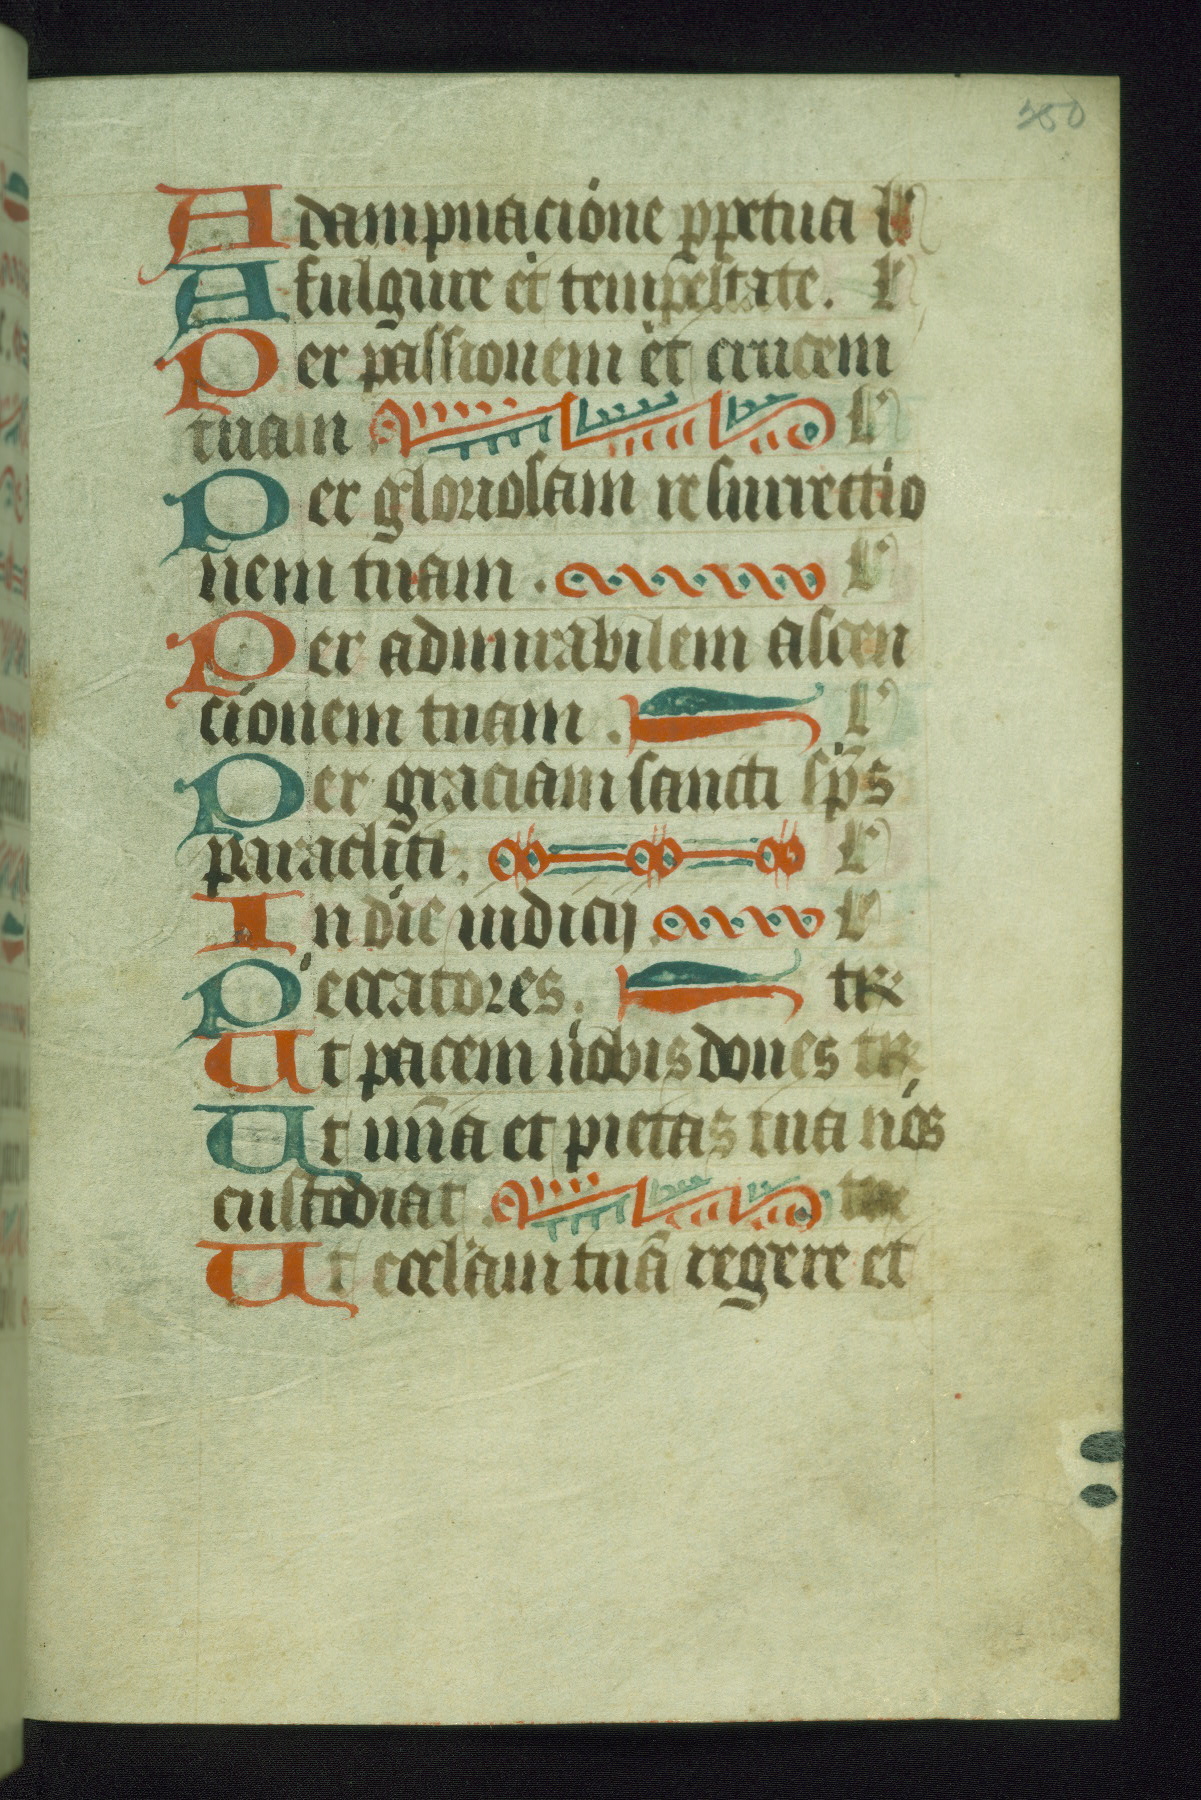 250
A dampnacione ppetua l
A fulgure et tempestate. l
Per passionem et crucem
tuam l
Per gloriosam resurrectio
nem tuam . l
Per admirabilem ascen
cionem tuam . l
Per graciam sancti sp̄s
paracliti . l
In die iudicij . l
Peccatores . tr
Ut pacem nobis dones tr
Ut mīa et pietas tua nos
custodiat . tr
Ut eccl̄am tuā regere et